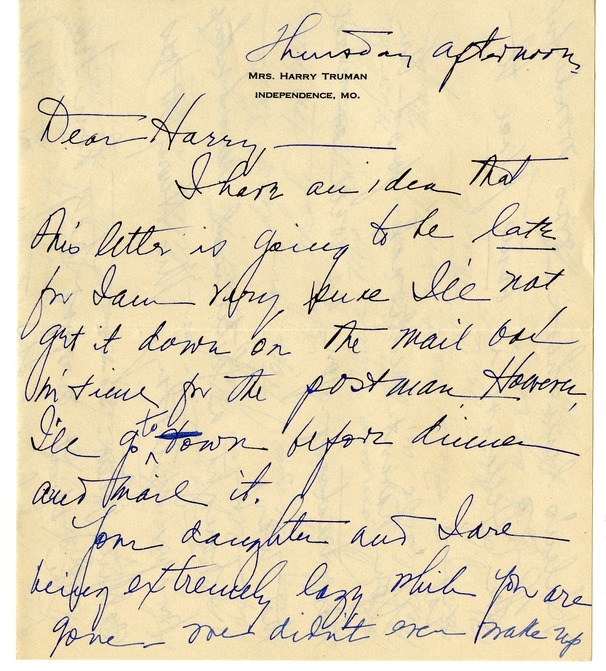 Thursday afternoon
MRS. HARRY TRUMAN
INDEPENDENCE, MO.
Dear Harry,
I have an idea that
this letter is going to be late
for I am very sure I'll not
get it down on the mail box
in time for the postman. However,
I'll go to town before dinner
and mail it.
Your daughter and I are
being extremely lazy while you are
gone - we didn't even wake up